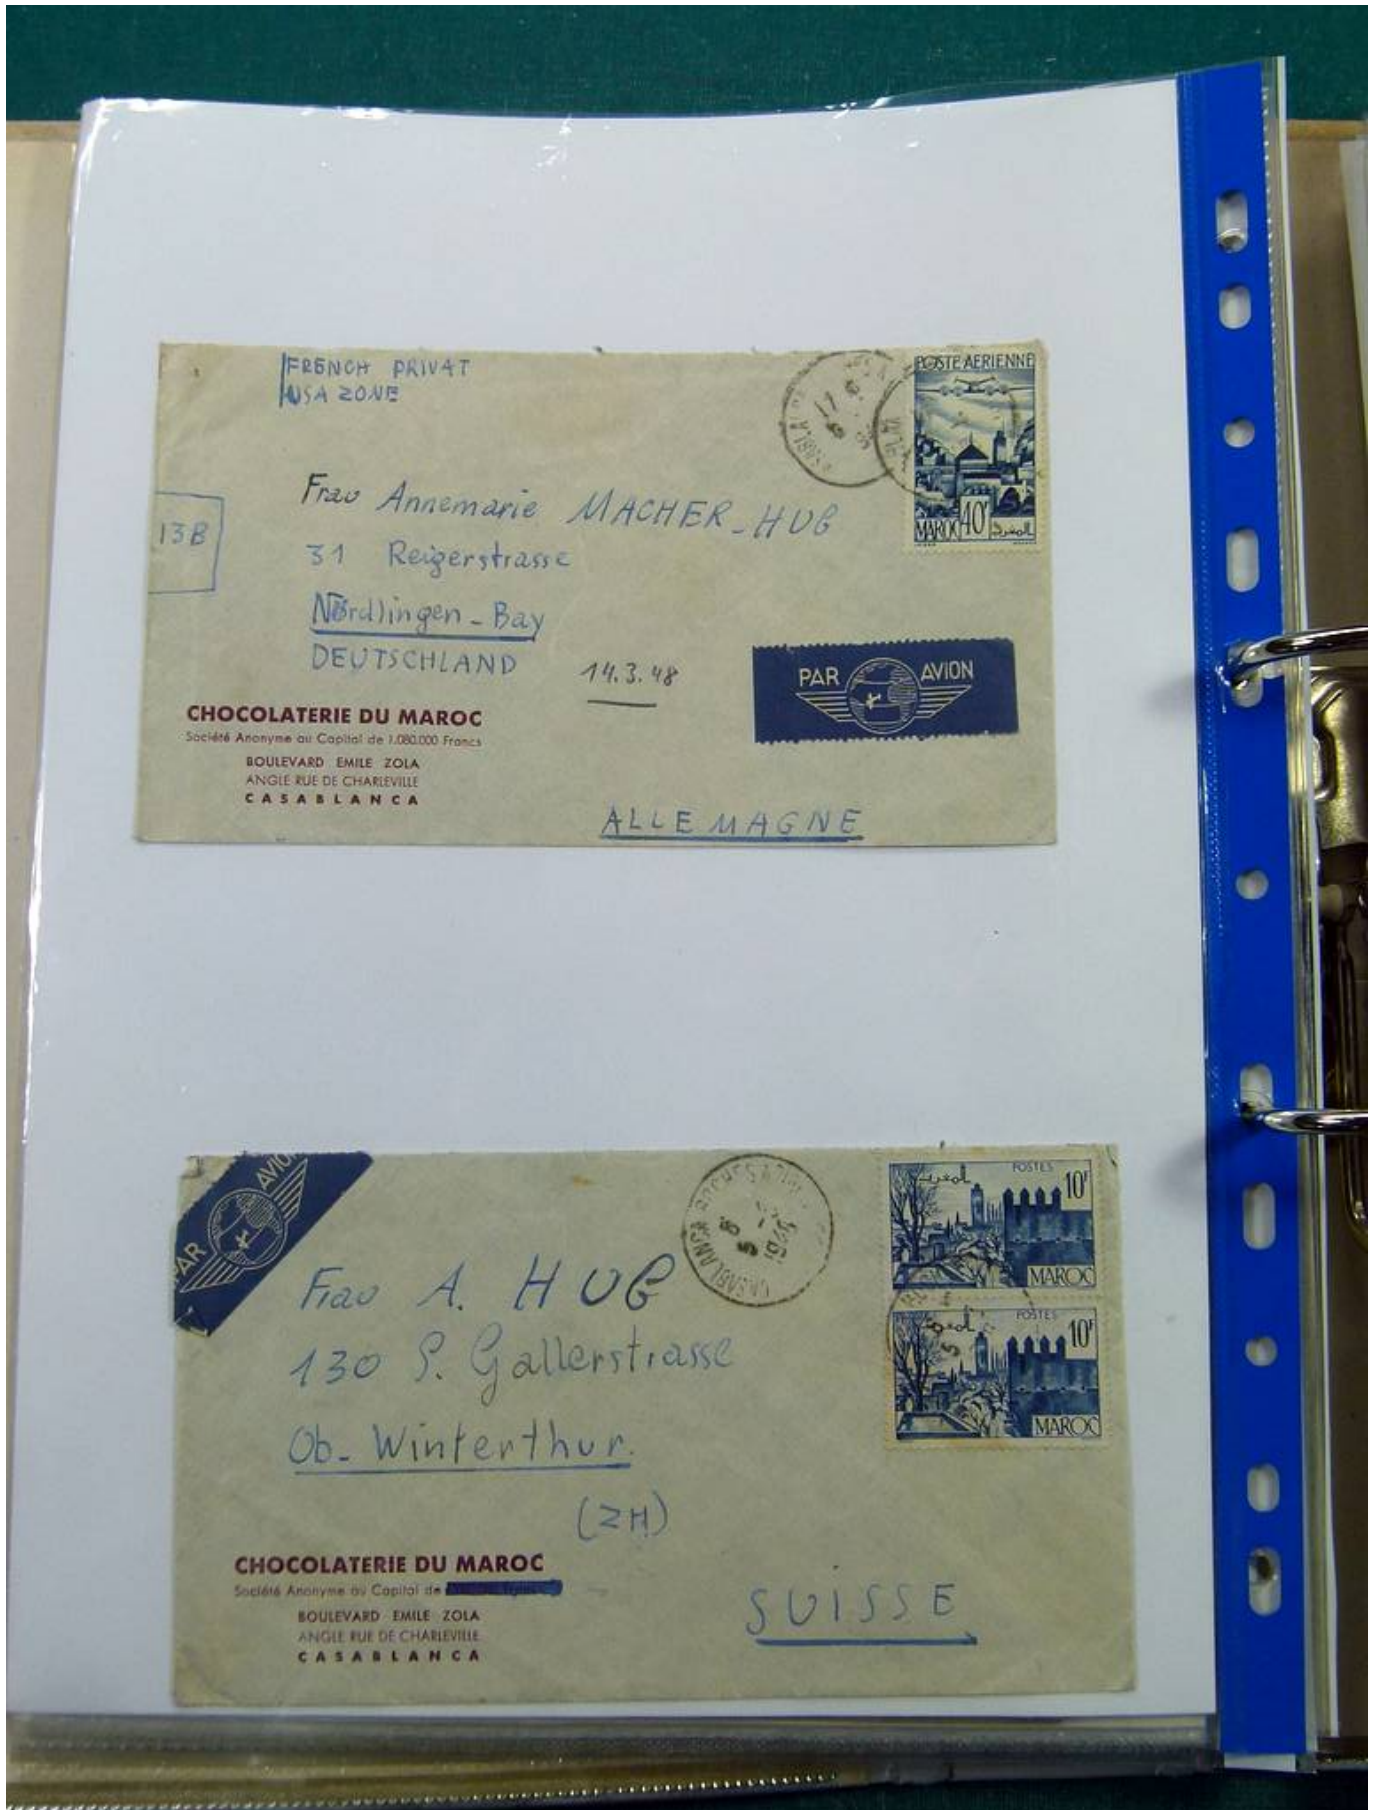 FRENCH PRIVAT
USA ZONE
POSTE AERIENNE
13B
Frau Annemarie MACHER-HUG
31 Reigerstrasse
MAROC 40F المغرب
Nördlingen-Bay
DEUTSCHLAND
14.3.48
PAR AVION
CHOCOLATERIE DU MAROC
Société Anonyme au Capital de 1.080.000 Francs
BOULEVARD EMILE ZOLA
ANGLE RUE DE CHARLEVILLE
CASABLANCA
ALLEMAGNE
PAR AVION
CASABLANCA ROCHES
POSTES 10F
المغرب
MAROC
Frau A. HUG
POSTES 10F
المغرب
MAROC
130 S. Gallerstrasse
Ob- Winterthur.
(ZH)
CHOCOLATERIE DU MAROC
Société Anonyme au Capital de
BOULEVARD EMILE ZOLA
ANGLE RUE DE CHARLEVILLE
CASABLANCA
SUISSE